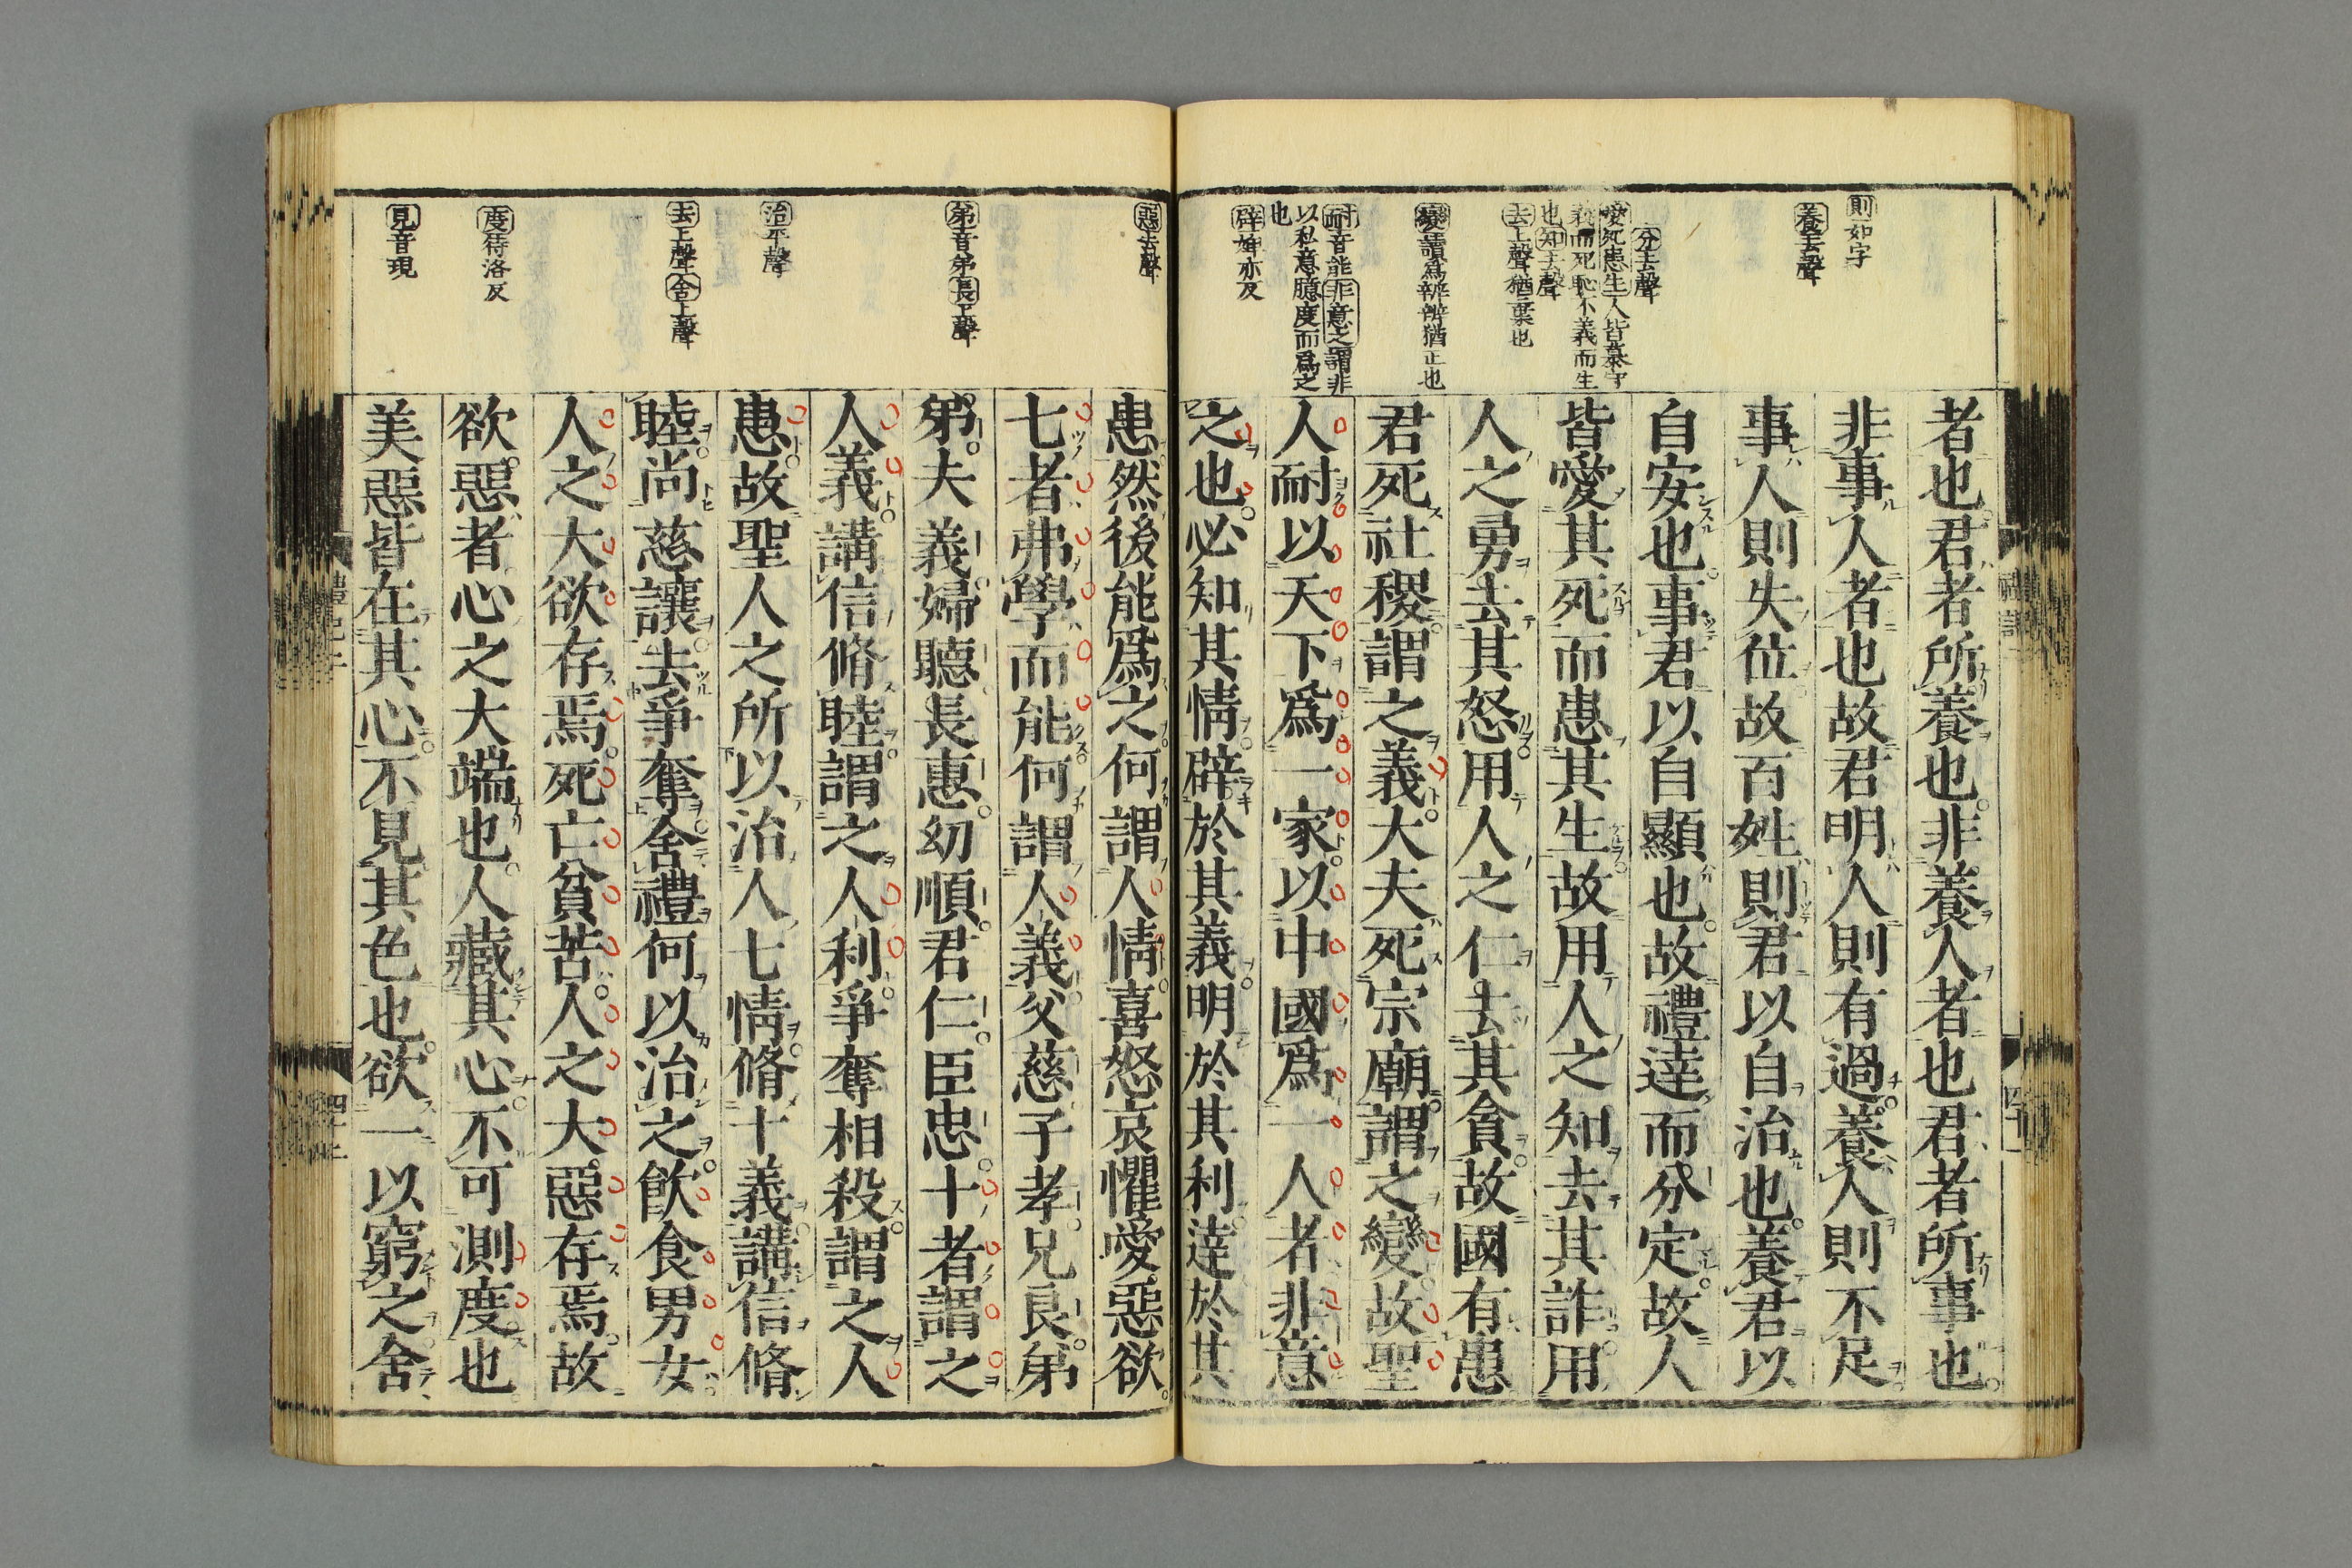 則如字
養去聲
分去聲
愛死患生人皆慕守
義而死恥不義而生
也知去聲
去上聲猶棄也
變讀爲辨辨猶正也
耐音能非意之謂非
以私意臆度而爲之
也
辟婢亦反
者也君者所養也非養人者也君者所事也
非事人者也故君明人則有過養人則不足
事人則失位故百姓則君以自治也養君以
自安也事君以自顯也故禮達而分定故人
皆愛其死而患其生故用人之知去其詐用
人之勇去其怒用人之仁去其貪故國有患
君死社稷謂之義大夫死宗廟謂之變故聖
人耐以天下爲一家以中國爲一人者非意
之也必知其情辟於其義明於其利達於其
惡去聲
弟音弟長上聲
治平聲
去上聲舍上聲
度待洛反
見音現
患然後能爲之何謂人情喜怒哀懼愛惡欲
七者弗學而能何謂人義父慈子孝兄良弟
弟夫義婦聽長惠幼順君仁臣忠十者謂之
人義講信脩睦謂之人利爭奪相殺謂之人
患故聖人之所以治人七情脩十義講信脩
睦尚慈讓去爭奪舍禮何以治之飮食男女
人之大欲存焉死亡貧苦人之大惡存焉故
欲惡者心之大端也人藏其心不可測度也
美惡皆在其心不見其色也欲一以窮之舍